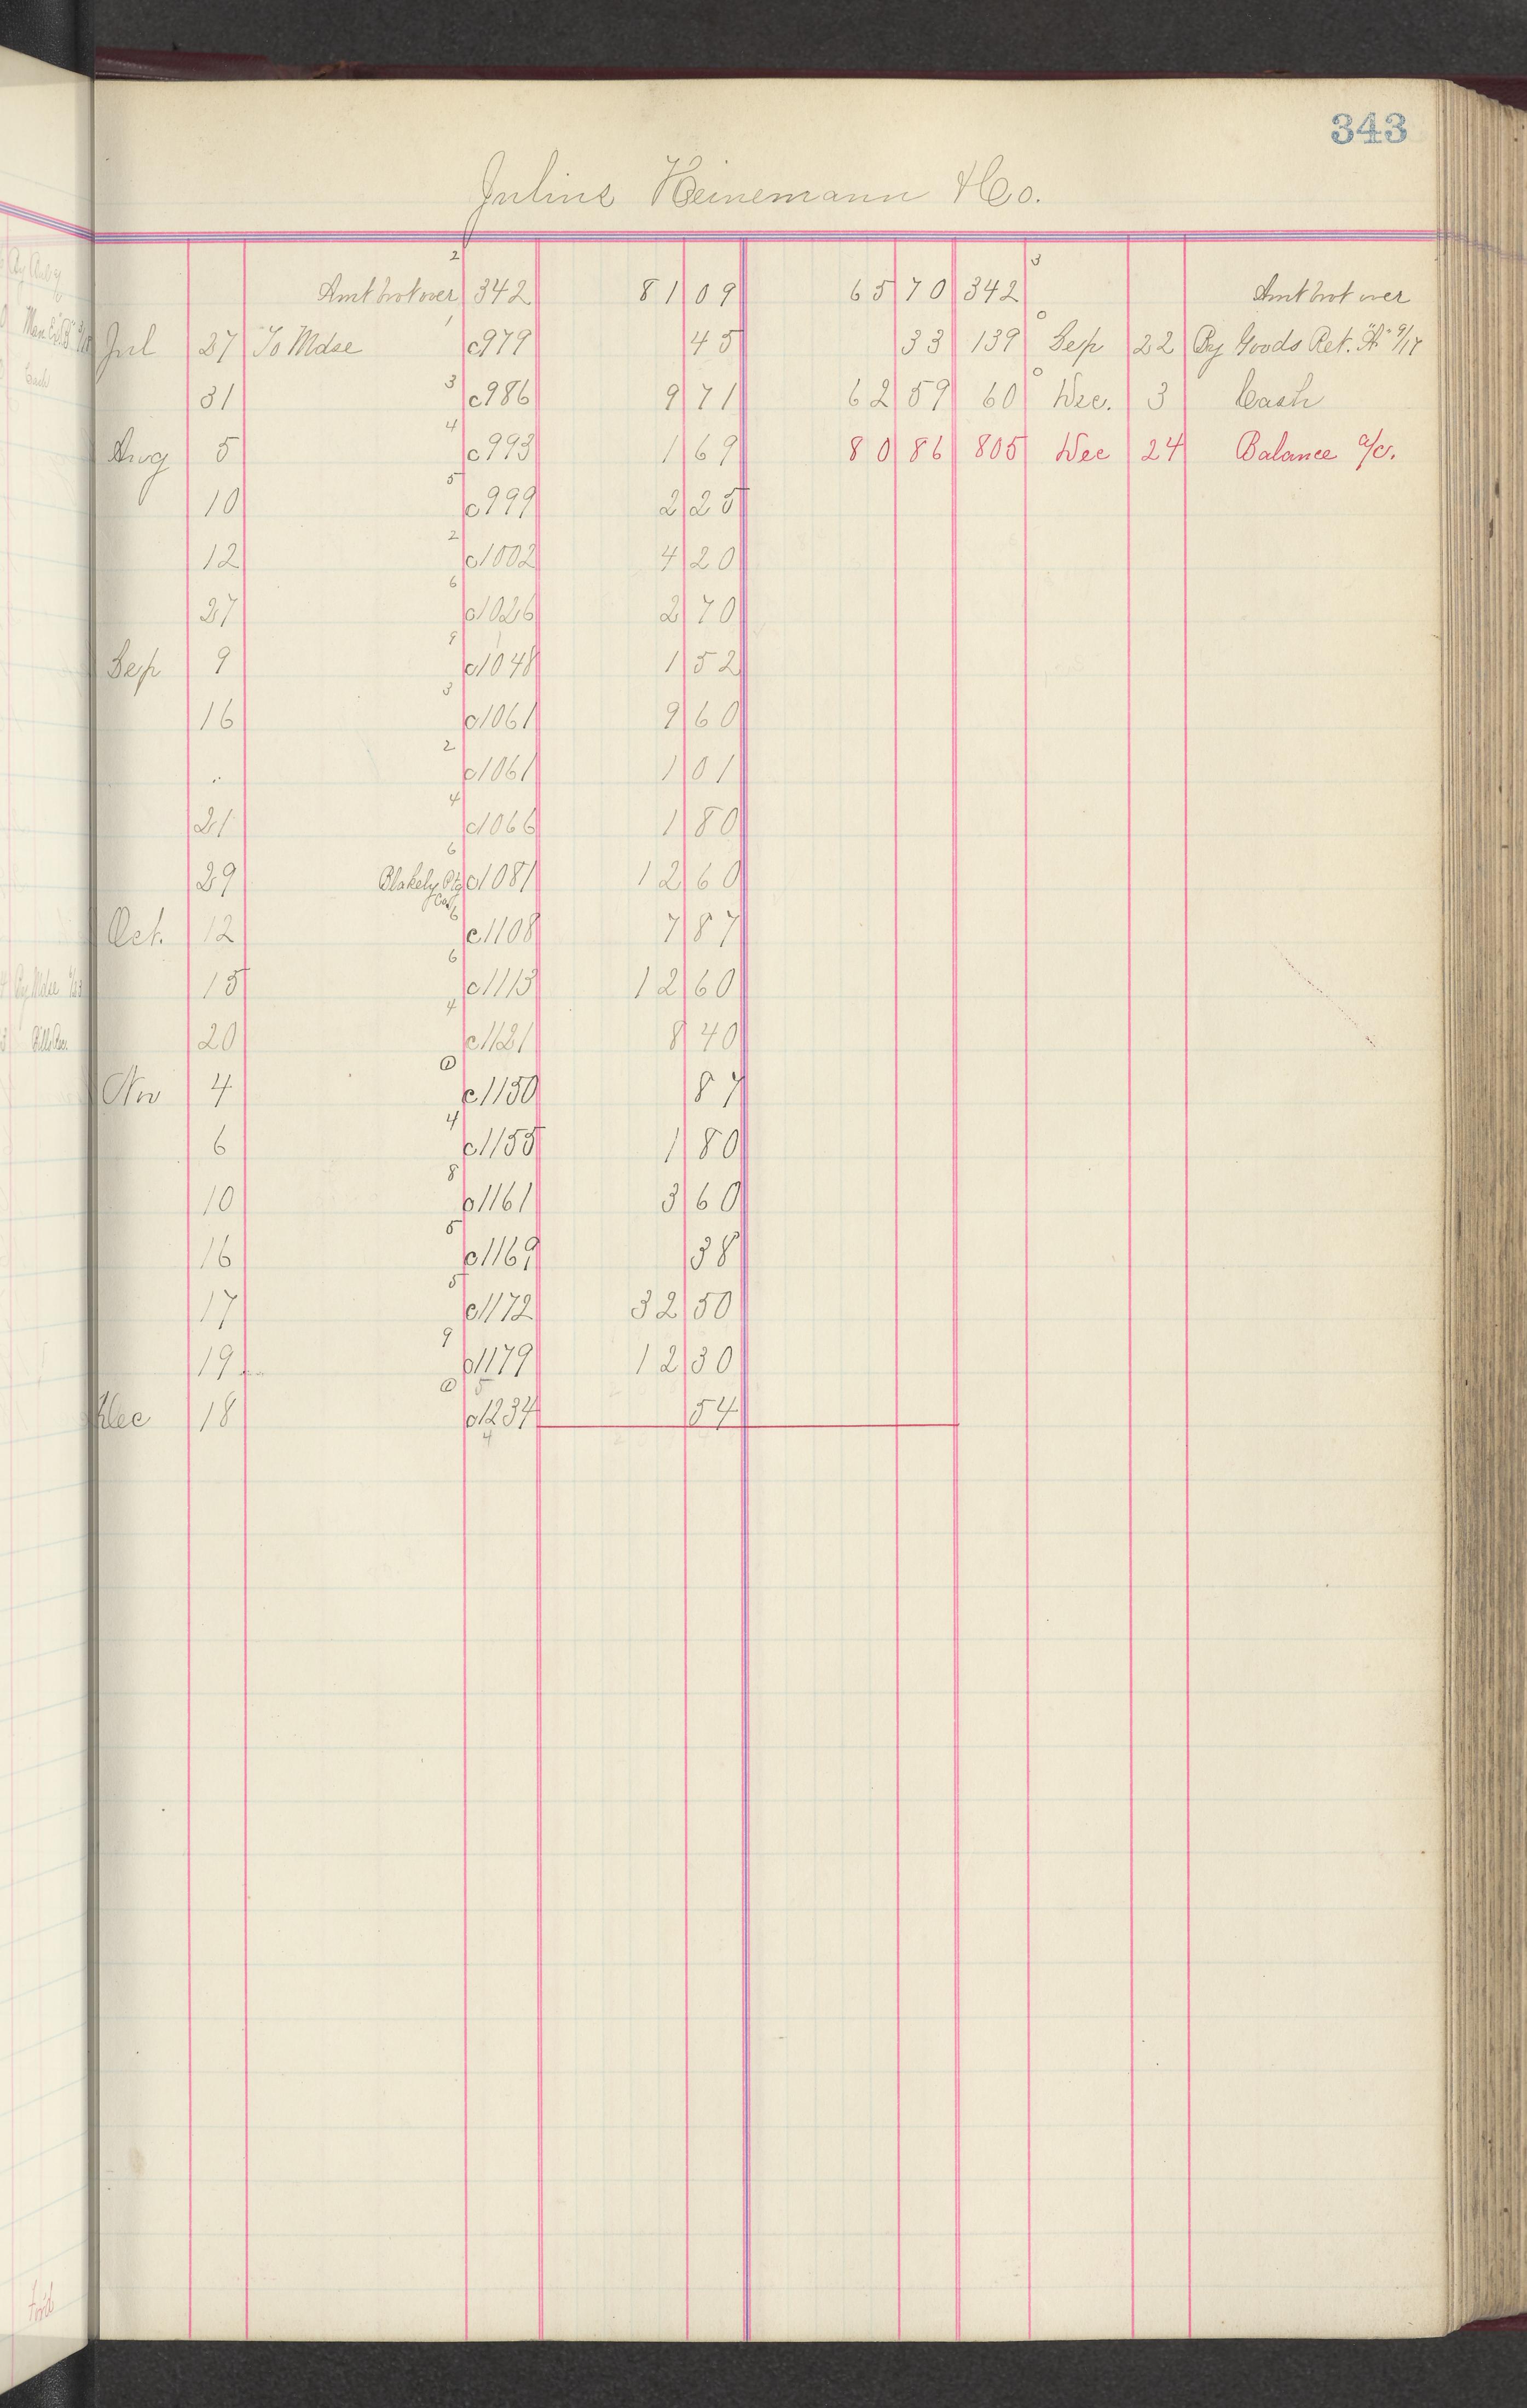 343
Julius Heinemann & Co.
2 3
Amt brot over 342 81 09 65 70 342 Amt brot over
Jul 27 To Mdse 1 c979 45 33 139 0 Sep 22 By Goods Ret. 9/17
31 3 c986 9 71 62 59 60 0 Dec. 3 Cash
Aug 5 4 c993 1 69 80 86 805 Dec 24 Balance a/c.
10 5 c999 2 25
12 2 c1002 4 20
27 6 c1026 2 70
Sep 9 c1048 1 52
16 3 c1061 9 60
. 2 c1061 1 01
21 4 c1066 1 80
29 Blakely 6 c1081 12 60
Oct. 12 6 c1108 7 87
15 6 c1113 12 60
20 4 c1121 8 40
Nov 4 0 c1150 87
6 4 c1155 1 80
10 8 c1161 3 60
16 5 c1169 38
17 5 c1172 32 50
19 9 c1179 12 30
Dec 18 0 c1234 54